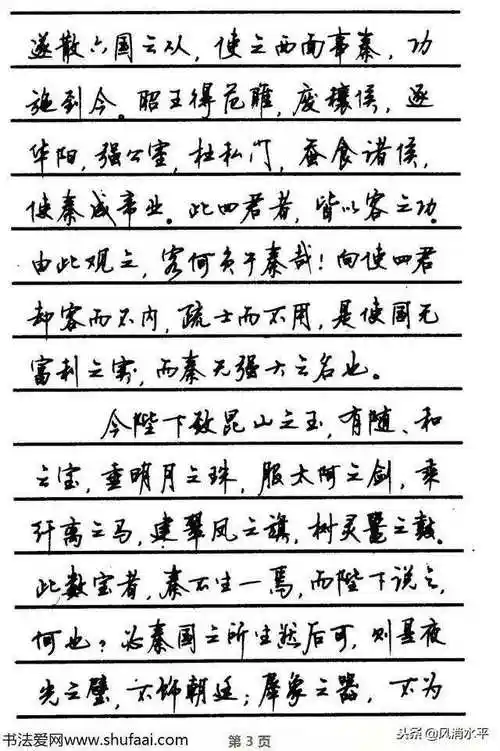 遂散六国之从，使之西面事秦，功
施到今。昭王得范雎，废穰侯，逐
华阳，强公室，杜私门，蚕食诸侯，
使秦成帝业。此四君者，皆以客之功。
由此观之，客何负于秦哉！向使四君
却客而不内，疏士而不用，是使国无
富利之实，而秦无强大之名也。
今陛下致昆山之玉，有随、和
之宝，垂明月之珠，服太阿之剑，乘
纤离之马，建翠凤之旗，树灵鼍之鼓。
此数宝者，秦不生一焉，而陛下说之，
何也？必秦国之所生然后可，则是夜
光之璧，不饰朝廷；犀象之器，不为
书法爱网www.shufaai.com
第 3 页
头条@风消水平